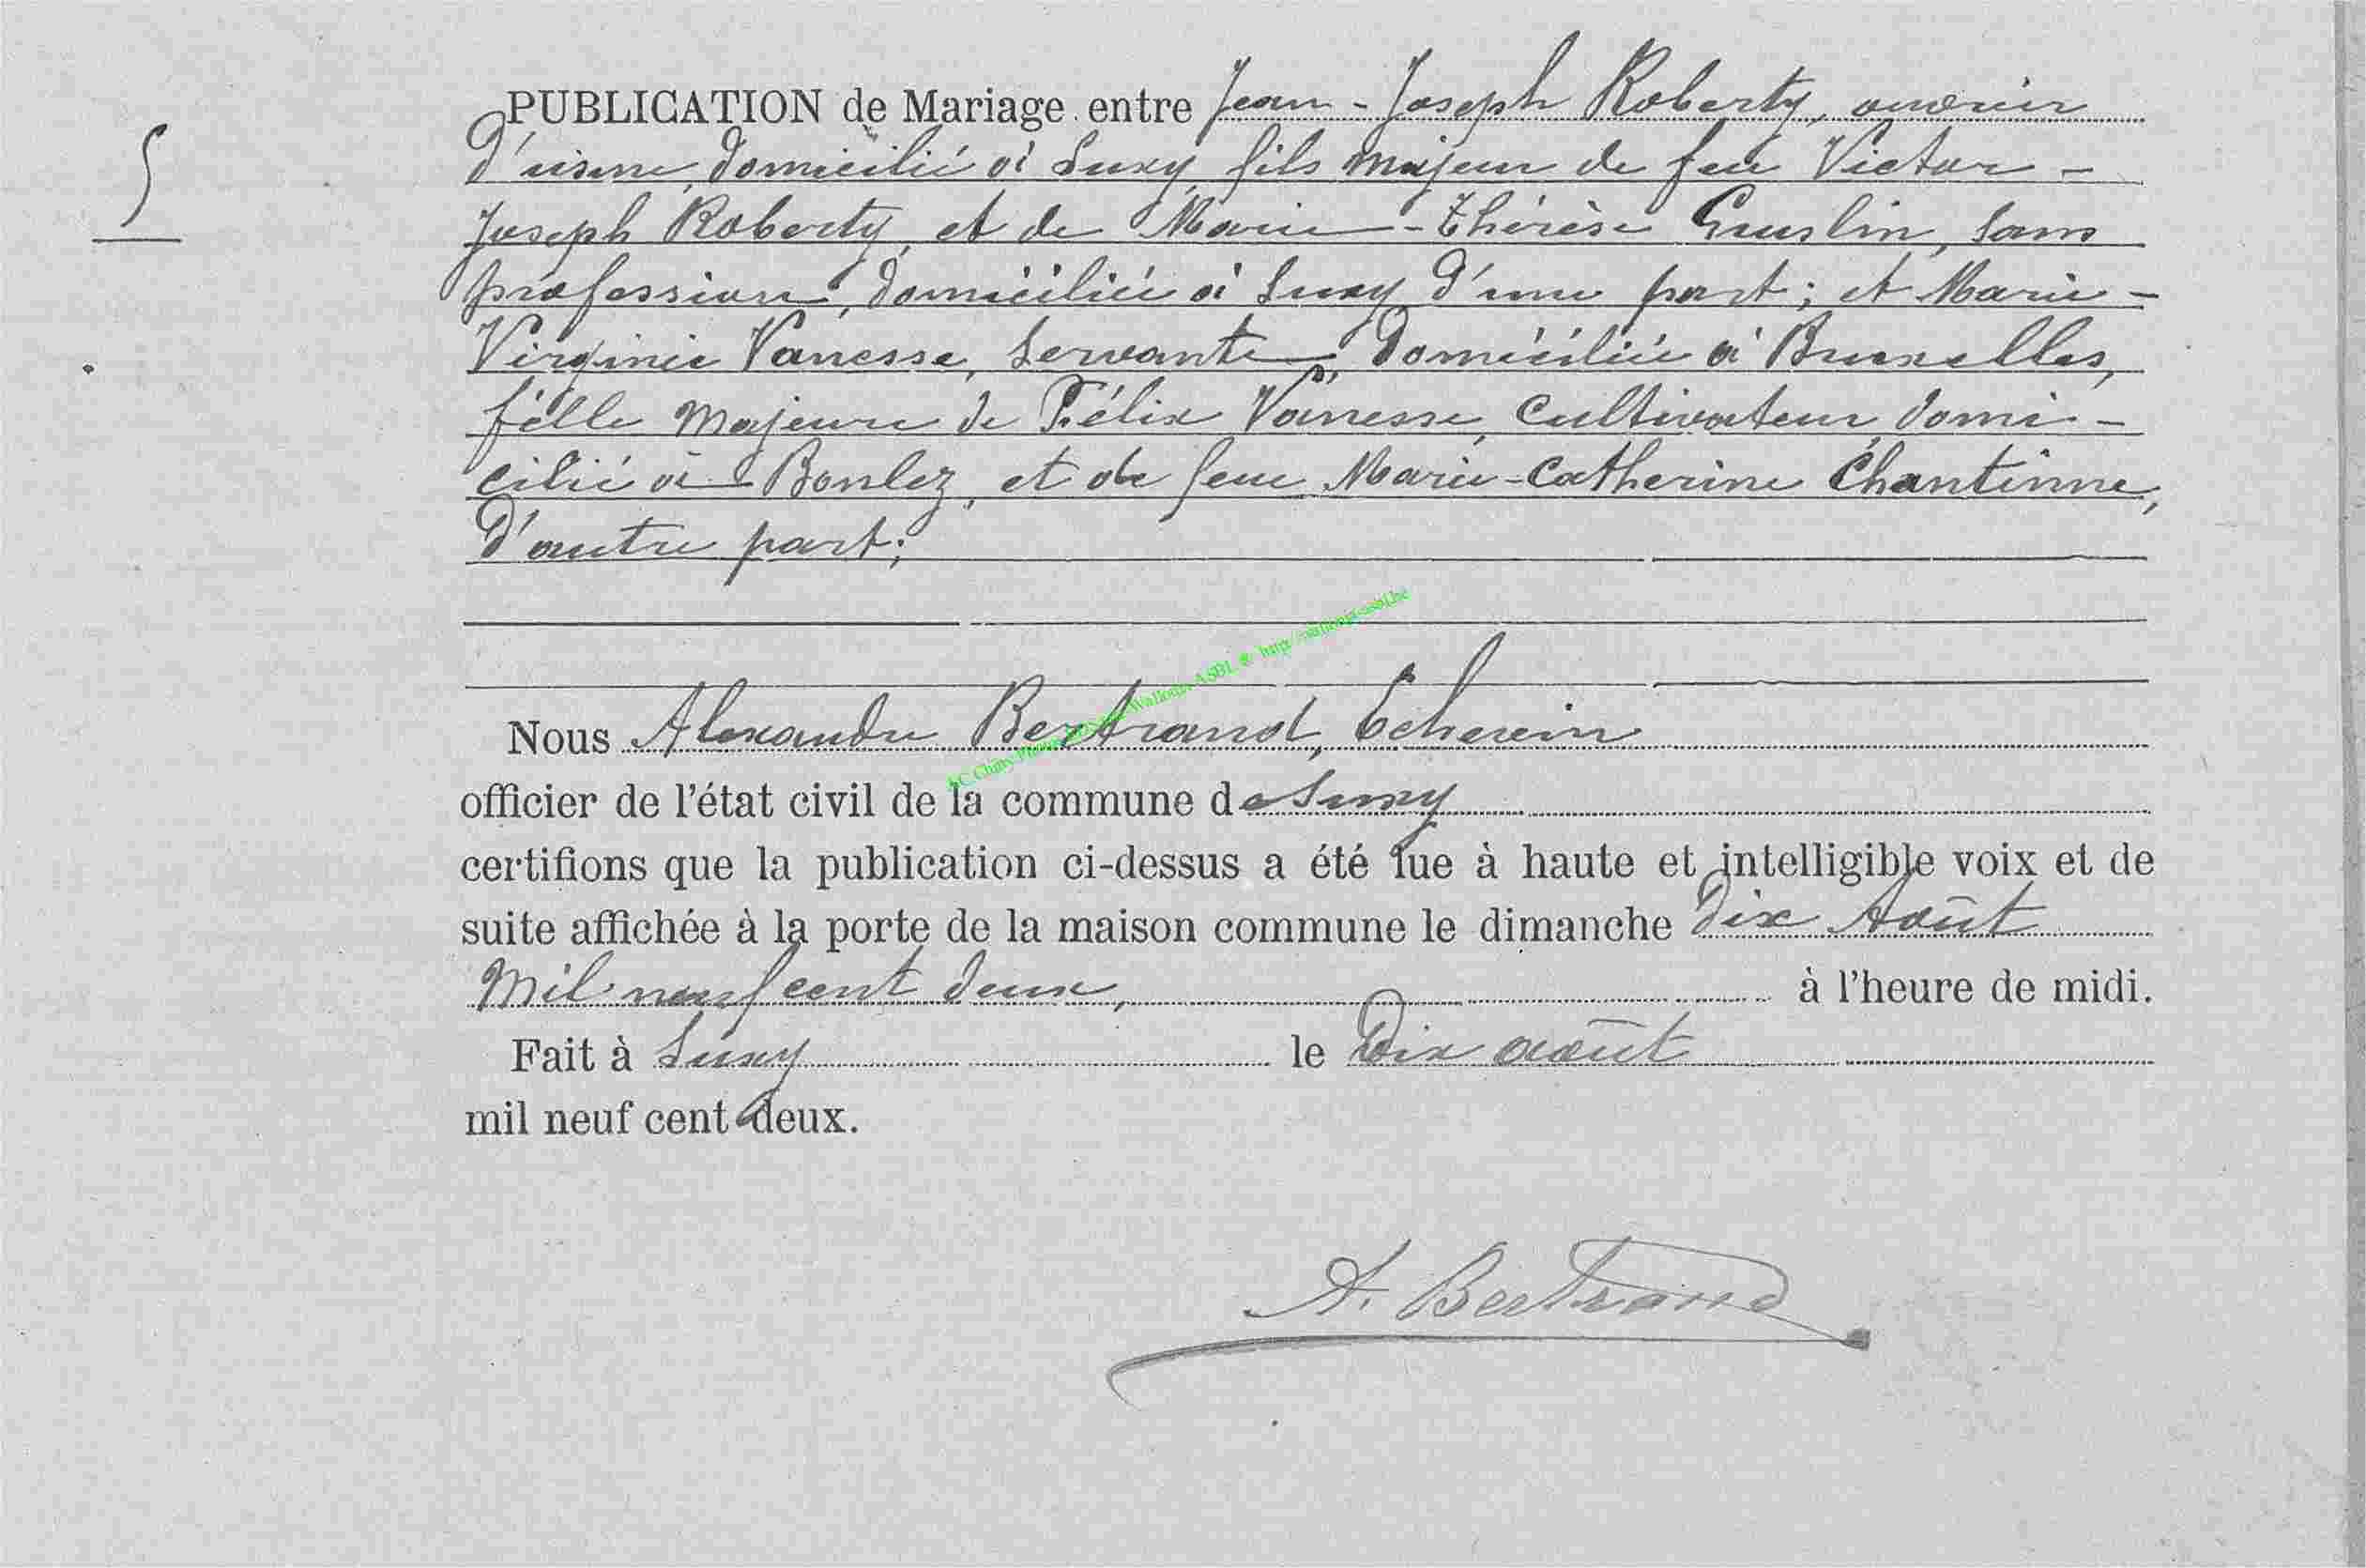 PUBLICATION de Mariage entre Jean-Joseph Roberty, ouvrier
5
d'usine, domicilié à Suxy, fils majeur de feu Victor-
Joseph Roberty, et de Marie-Thérèse Guslin, sans
profession, domiciliée à Suxy d'une part; et Marie-
Virginie Vanesse, servante, domiciliée à Bruxelles,
fille majeure de Félix Vanesse, cultivateur domi-
cilié à Bonlez, et de feue Marie-Catherine Chantinne,
d'autre part;
Nous Alexandre Bertrand, Echevin
officier de l'état civil de la commune de Suxy
certifions que la publication ci-dessus a été lue à haute et intelligible voix et de
suite affichée à la porte de la maison commune le dimanche dix Août
mil neuf cent deux, à l'heure de midi.
Fait à Suxy le dix août
mil neuf cent deux.
A. Bertrand